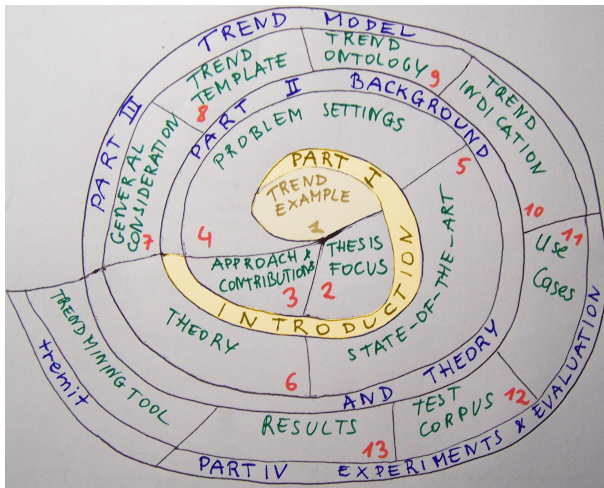 PART I INTRODUCTION
TREND
EXAMPLE
1
THESIS
FOCUS
2
APPROACH &
CONTRIBUTIONS
3
PART II BACKGROUND AND THEORY
PROBLEM SETTINGS
4
STATE-OF-THE-ART
5
THEORY
6
PART III TREND MODEL
GENERAL
CONSIDERATION
7
TREND
TEMPLATE
8
TREND
ONTOLOGY
9
TREND
INDICATION
10
PART IV EXPERIMENTS & EVALUATION
USE
CASES
11
TEST
CORPUS
12
RESULTS
13
TRENDMINING TOOL
tremit